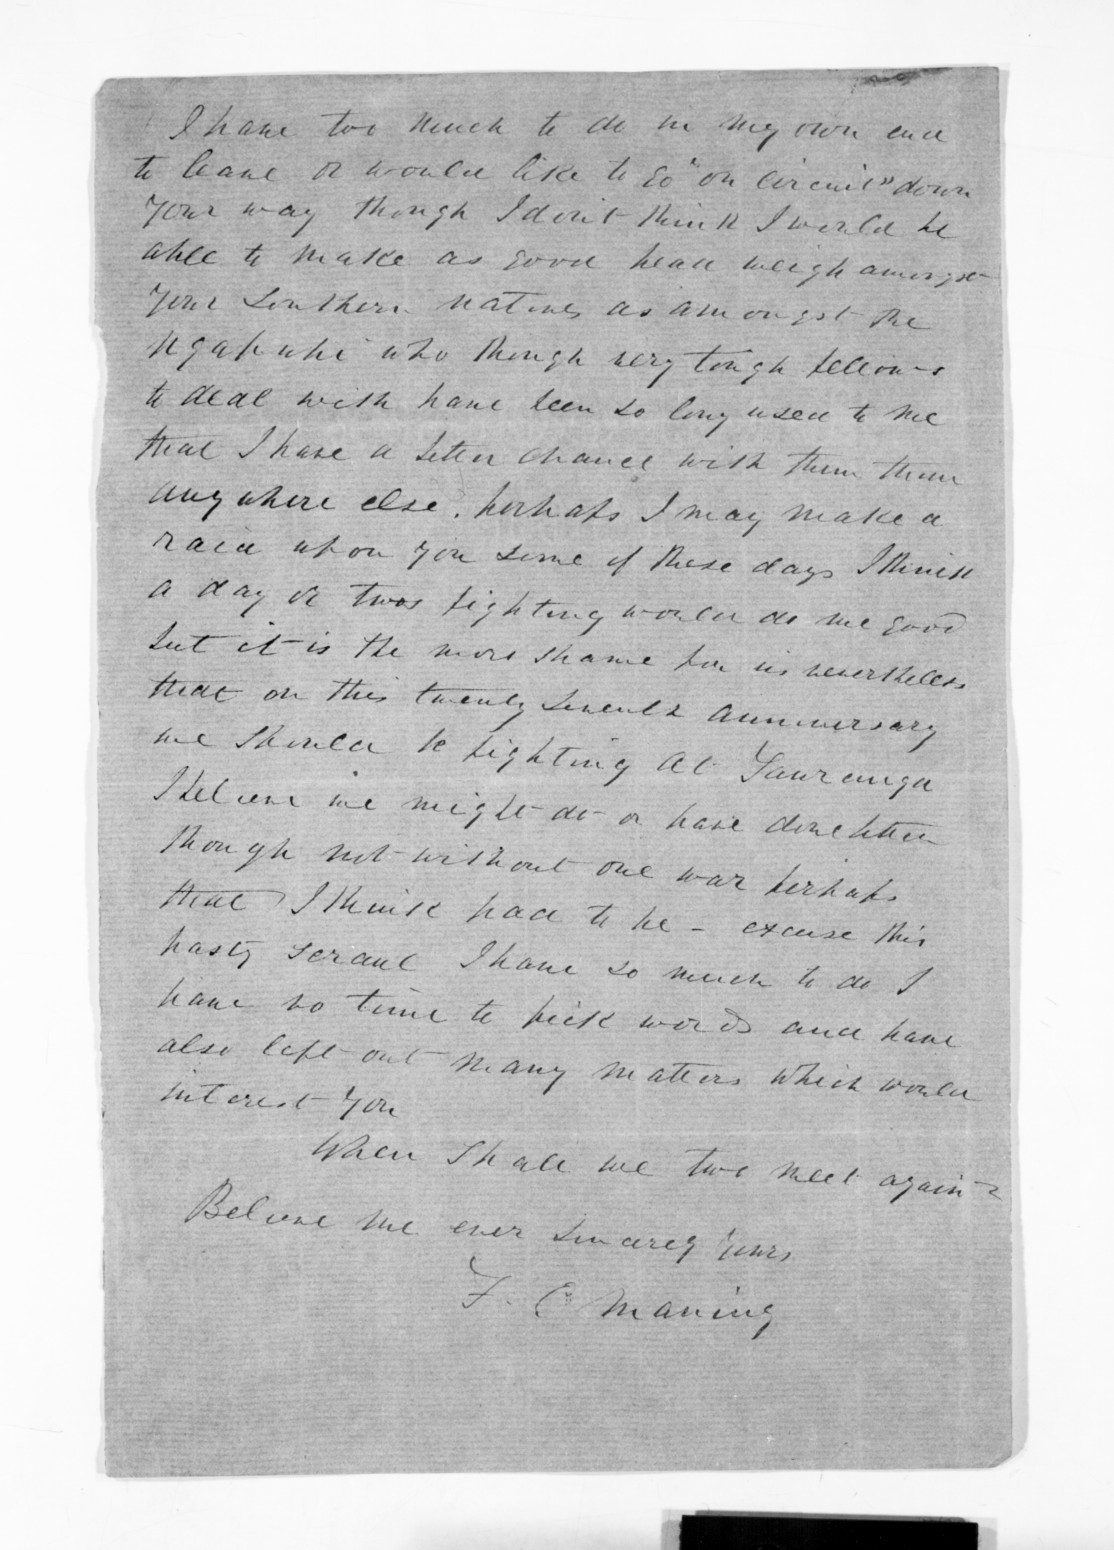 I have too much to do in my own end
to leave or would like to go "on circuit" down
your way though I don't think I would be
able to make as good head weigh amongst
your Southern natives as amongst the
Ngapuhi who though very tough fellows
to deal with have been so long used to me
that I have a better chance with them them
anywhere else. perhaps I may make a
raid upon you some of these days I think
a day or twos fighting would do me good
but it is the more shame for us nevertheless
that on this twenty seventh anniversary
we should be fighting at Tauranga
I believe we might do or have done better
though not without one war perhaps
that I think had to be - excuse this
hasty scrawl I have so much to do I
have no time to pick words and have
also left out many matters which would
interest you
When shall we two meet again
Believe me ever sincerely yours
F. E Maning